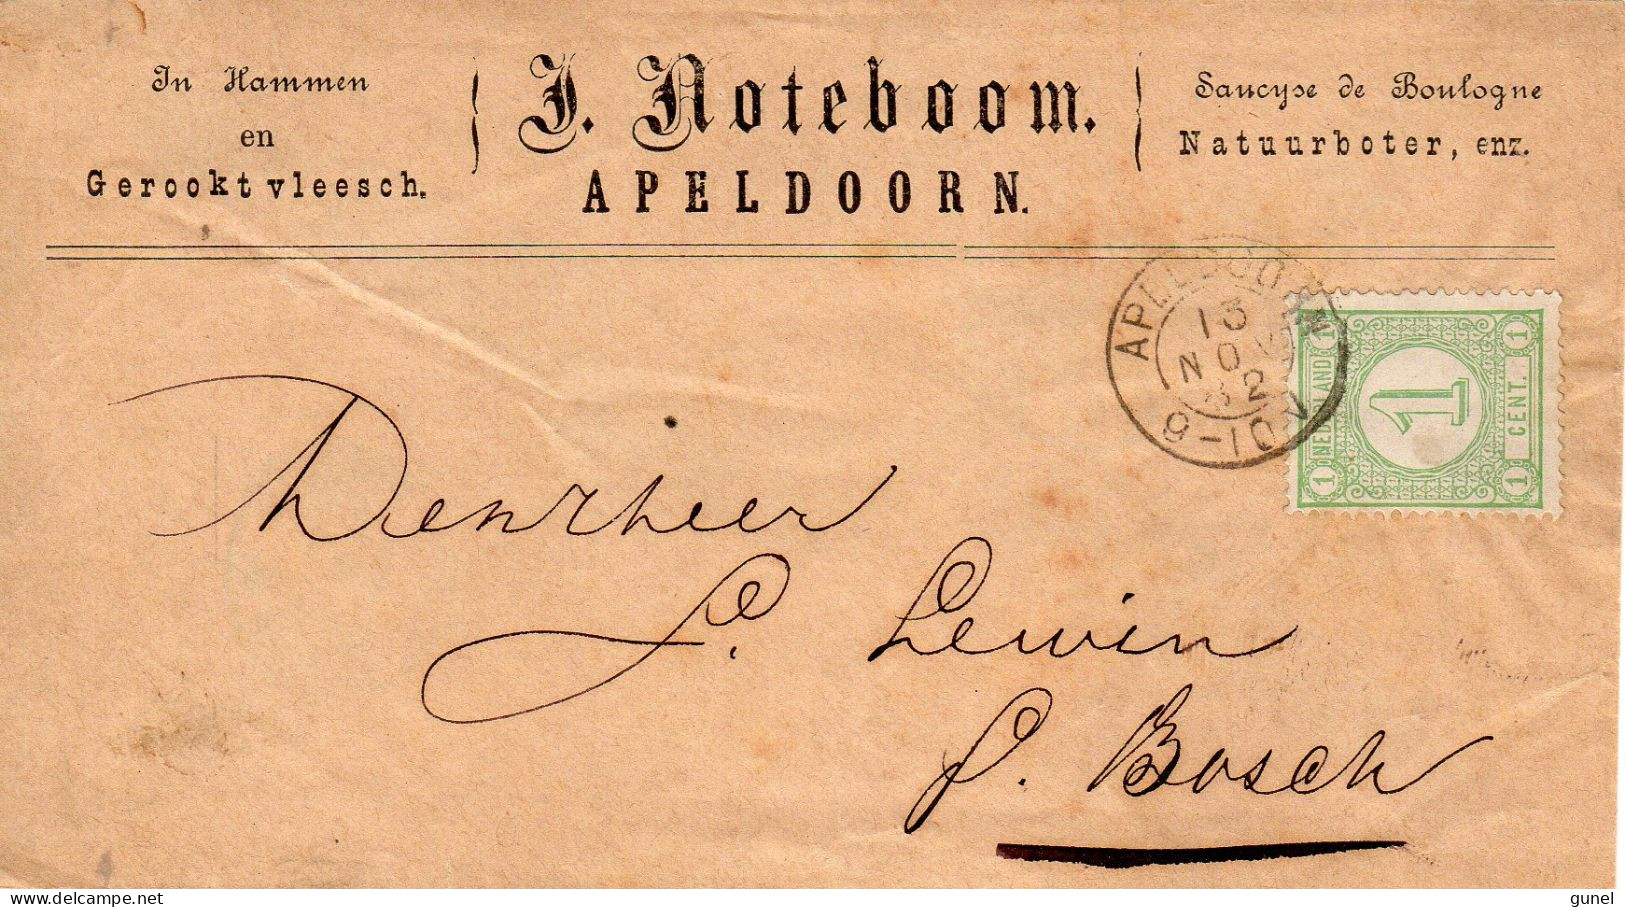 In Hammen
en
Gerookt vleesch.
J. Noteboom.
APELDOORN.
Saucyse de Boulogne
Natuurboter, enz.
APELDOORN
13
NOV
82
9-10V
1 NEDERLAND 1
1
1 CENT. 1
Denzheer
L. Lewin
s. Bosch
gunel
delcampe.net